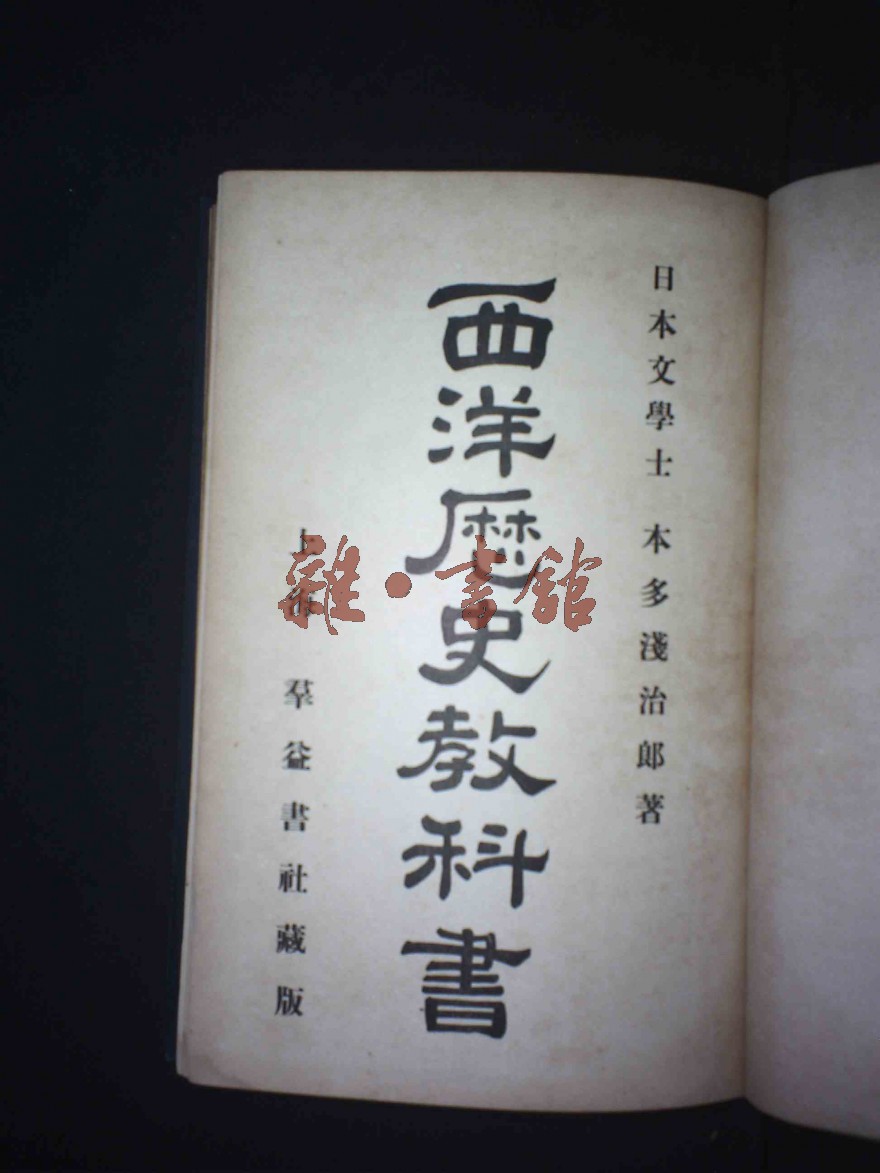 日本文學士 本多淺治郎著
西洋歷史教科書
上海 羣益書社藏版
雜·書館